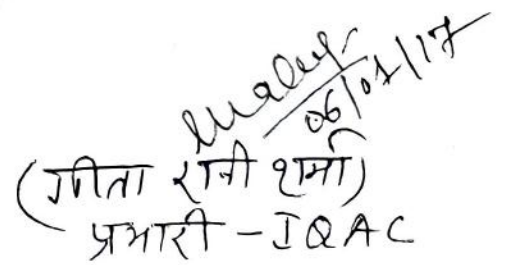 06/01/17
(गीता रानी शर्मा)
प्रभारी - IQAC